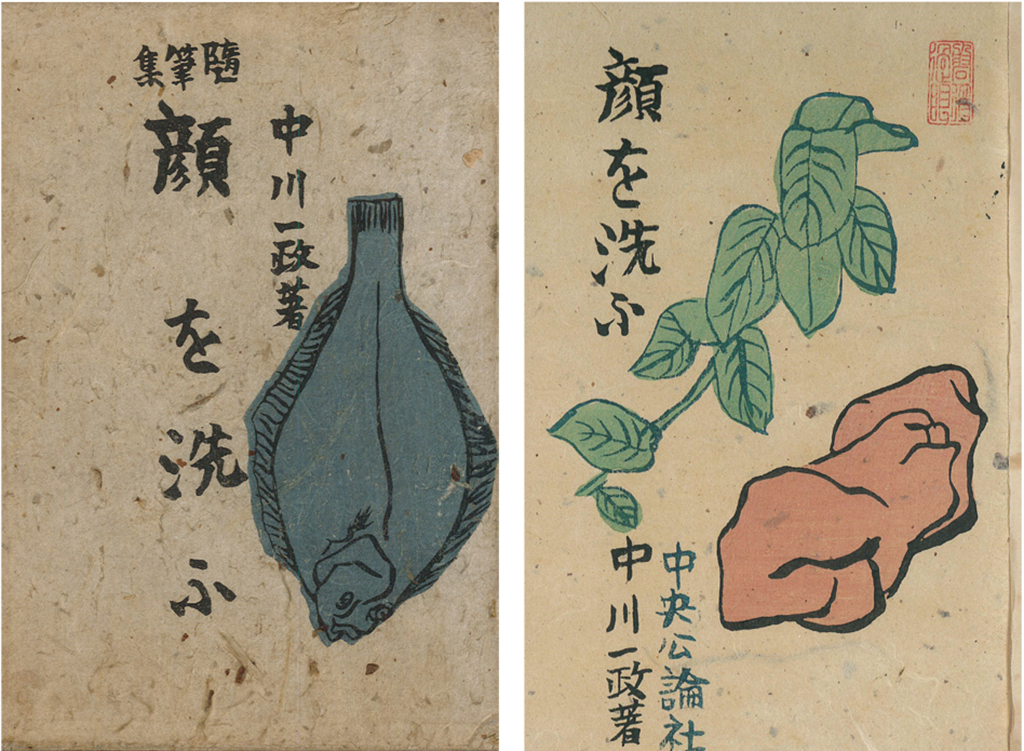 隨筆集
顔を洗ふ
中川一政著
顔を洗ふ
中川一政著
中央公論社